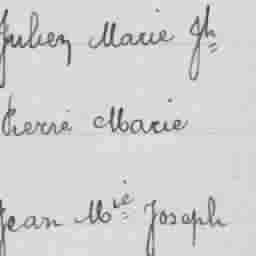 Julien Marie Jh
Pierre Marie
Jean Mie Joseph